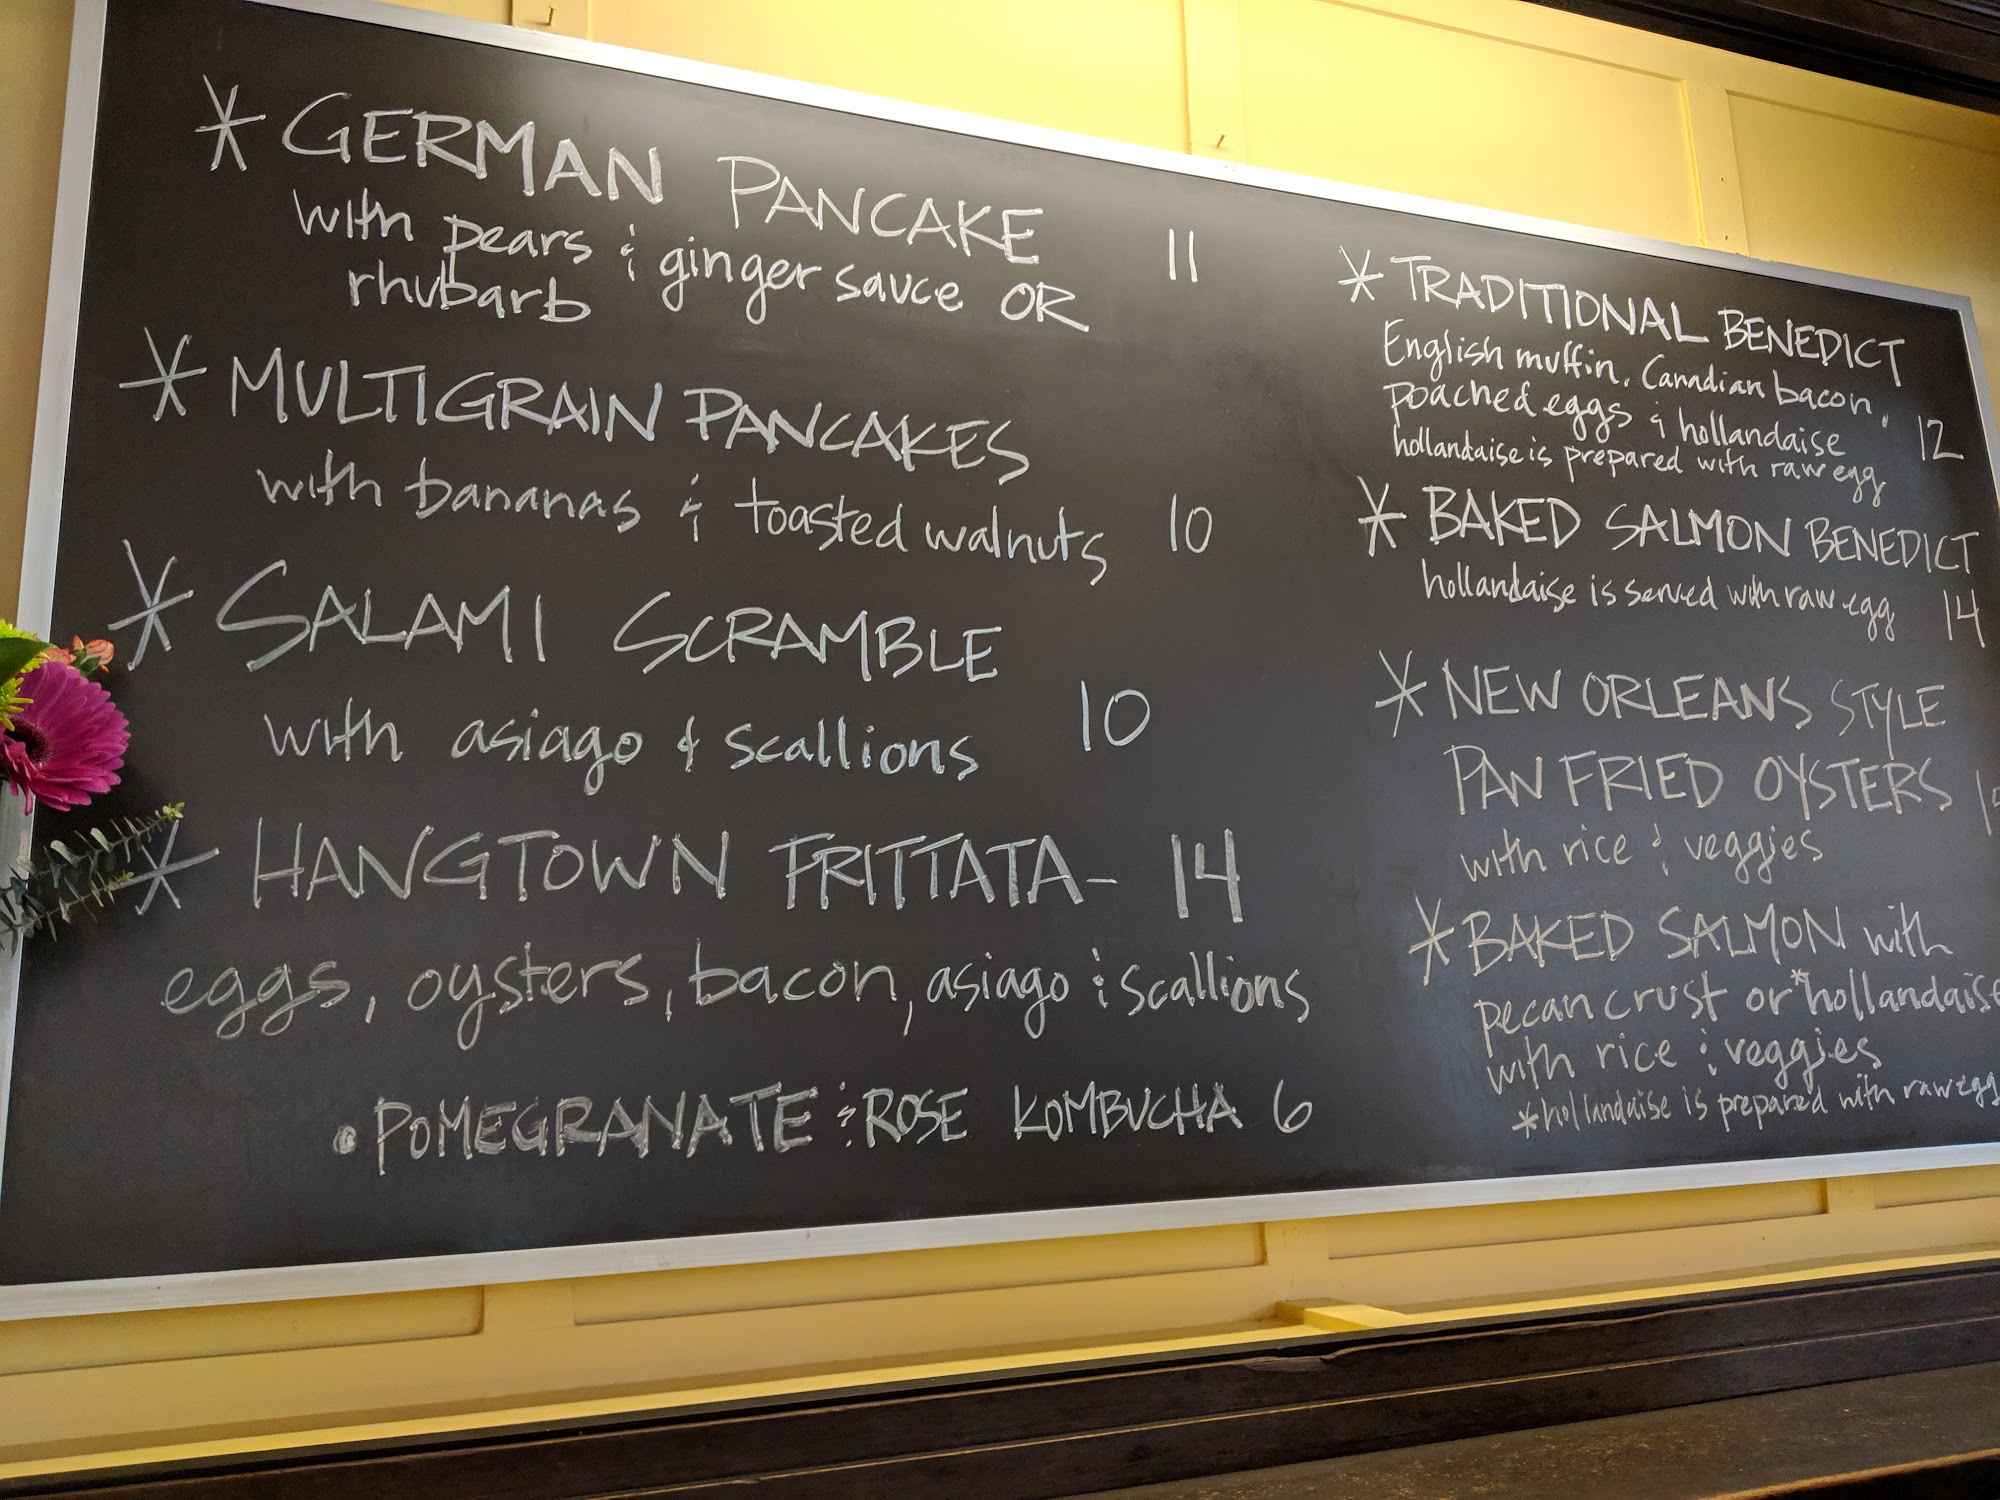 * GERMAN PANCAKE
with pears & ginger sauce OR 11
rhubarb
* MULTIGRAIN PANCAKES
with bananas & toasted walnuts 10
* SALAMI SCRAMBLE
with asiago & scallions 10
* HANGTOWN FRITTATA - 14
eggs, oysters, bacon, asiago & scallions
• POMEGRANATE & ROSE KOMBUCHA 6
* TRADITIONAL BENEDICT
English muffin, Canadian bacon,
poached eggs & hollandaise 12
hollandaise is prepared with raw egg
* BAKED SALMON BENEDICT
hollandaise is served with raw egg 14
* NEW ORLEANS STYLE
PAN FRIED OYSTERS
with rice & veggies
* BAKED SALMON with
pecan crust or *hollandaise
with rice & veggies
*hollandaise is prepared with raw egg